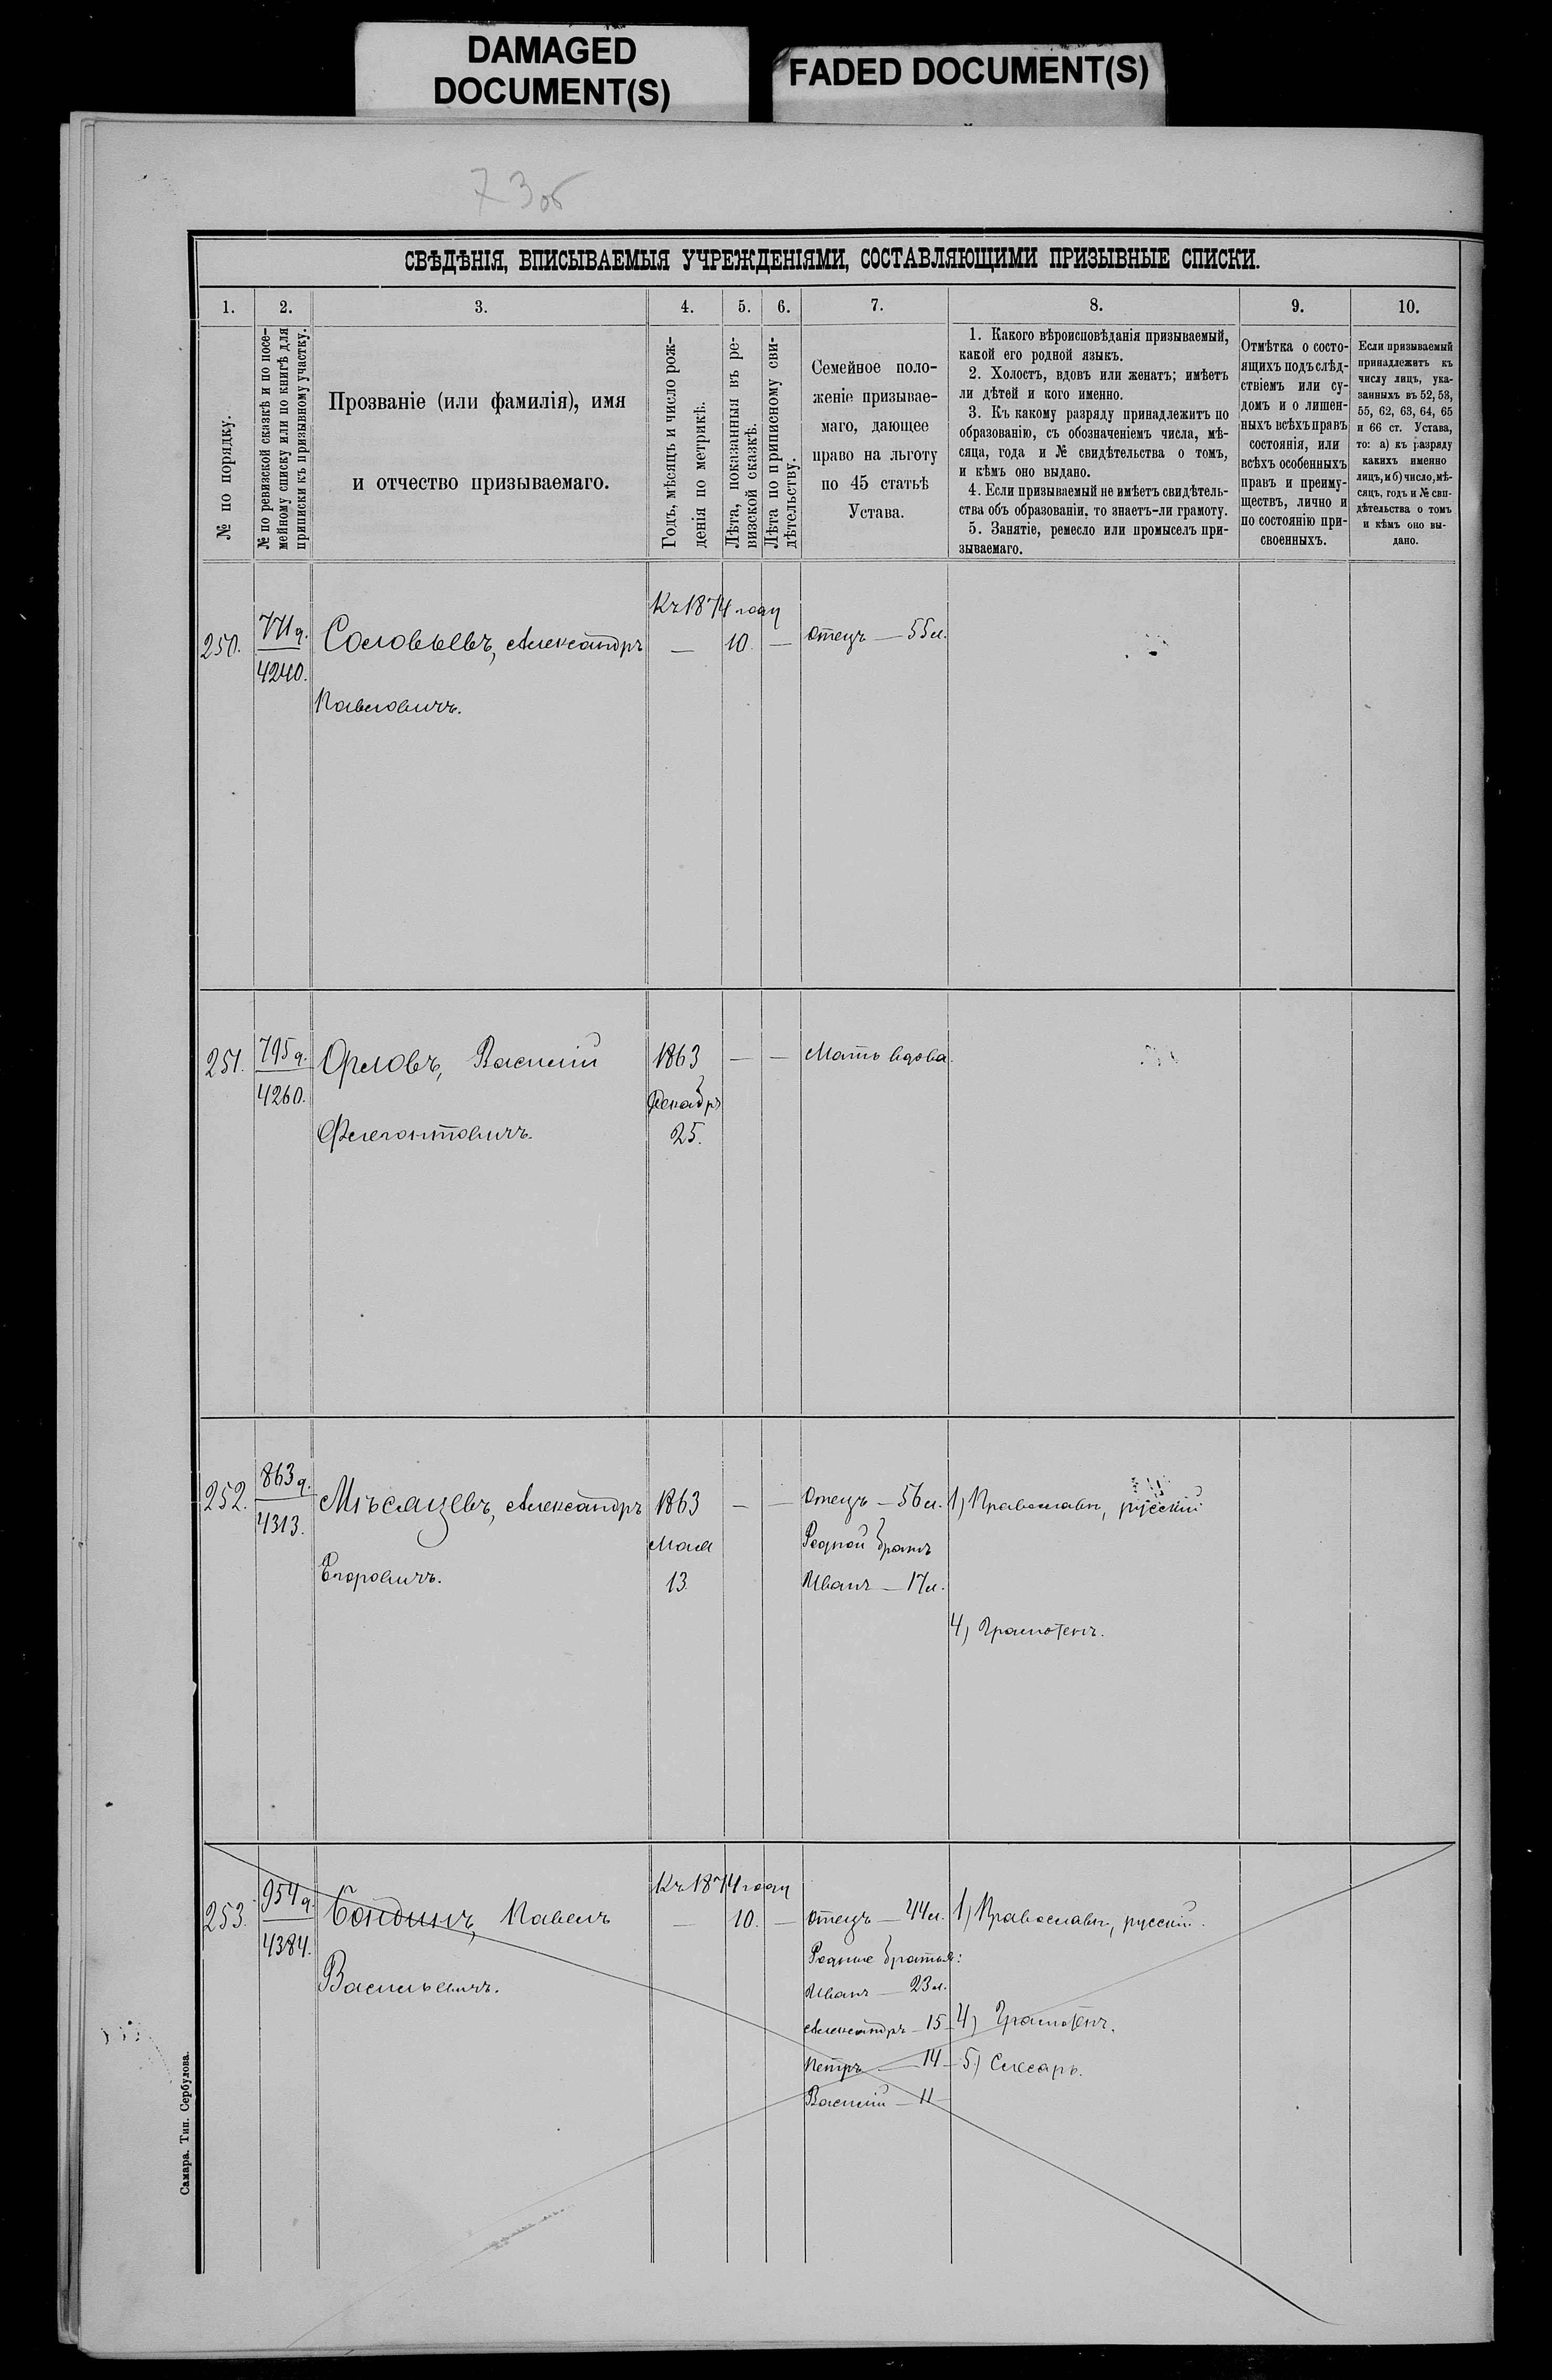 DAMAGED
DOCUMENT(S)
FADED DOCUMENT(S)
73 об
СВѢДѢНІЯ, ВПИСЫВАЕМЫЯ УЧРЕЖДЕНІЯМИ, СОСТАВЛЯЮЩИМИ ПРИЗЫВНЫЕ СПИСКИ.
1. 2. 3. 4. 5. 6. 7. 8. 9. 10.
№ по порядку.
№ по ревизской сказкѣ и по посе-
мейному списку или по книгѣ для
приписки къ призывному участку.
Прозваніе (или фамилія), имя
и отчество призываемаго.
Годъ, мѣсяцъ и число рож-
денія по метрикѣ.
Лѣта, показанныя въ ре-
визской сказкѣ.
Лѣта по приписному сви-
дѣтельству.
Семейное поло-
женіе призывае-
маго, дающее
право на льготу
по 45 статьѣ
Устава.
1. Какого вѣроисповѣданія призываемый,
какой его родной языкъ.
2. Холостъ, вдовъ или женатъ; имѣетъ
ли дѣтей и кого именно.
3. Къ какому разряду принадлежитъ по
образованію, съ обозначеніемъ числа, мѣ-
сяца, года и № свидѣтельства о томъ,
и кѣмъ оно выдано.
4. Если призываемый не имѣетъ свидѣтель-
ства объ образованіи, то знаетъ-ли грамоту.
5. Занятіе, ремесло или промыселъ при-
зываемаго.
Отмѣтка о состо-
ящихъ подъ слѣд-
ствіемъ или су-
домъ и о лишен-
ныхъ всѣхъ правъ
состоянія, или
всѣхъ особенныхъ
правъ и преиму-
ществъ, лично и
по состоянію при-
своенныхъ.
Если призываемый
принадлежитъ къ
числу лицъ, ука-
занныхъ въ 52, 53,
55, 62, 63, 64, 65
и 66 ст. Устава,
то: а) къ разряду
какихъ именно
лицъ, и б) число, мѣ-
сяцъ, годъ и № сви-
дѣтельства о томъ
и кѣмъ оно вы-
дано.
Къ 1874 году
250. 771 д. Соловьевъ, Александръ — 10. — Отецъ — 55 л.
4240.
Павловичъ.
251. 795 д. Орловъ, Василій 1863 — — Мать вдова.
4260. Декабрь
Флегонтовичъ. 25.
252. 863 д. Мѣсяцевъ, Александръ 1863 — — Отецъ — 56 л. 1) Православн, русскій
4313. Мая Родной братъ
Егоровичъ. 13 Иванъ — 17 л.
4) Грамотенъ.
Къ 1874 году
253. 954 д. Бондинъ, Павелъ — 10. — Отецъ — 44 л. 1) Православн, русскій.
4384. Родные братья:
Васильевичъ. Иванъ — 23 л.
Александръ — 15 — 4) Грамотенъ.
Петръ — 14 — 5) Слесарь.
Василій — 11 —
Самара. Тип. Сербулова.